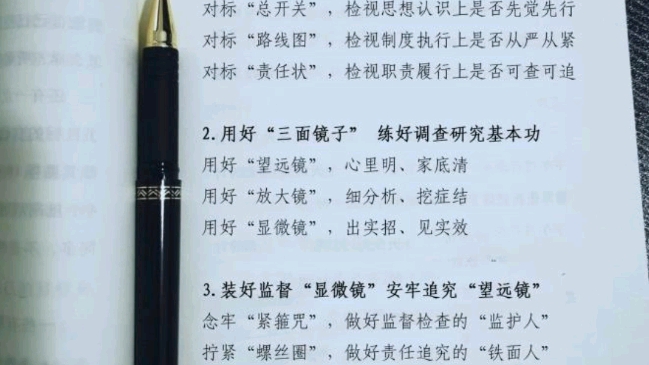 对标“总开关”，检视思想认识上是否先觉先行
对标“路线图”，检视制度执行上是否从严从紧
对标“责任状”，检视职责履行上是否可查可追
2.用好“三面镜子” 练好调查研究基本功
用好“望远镜”，心里明、家底清
用好“放大镜”，细分析、挖症结
用好“显微镜”，出实招、见实效
3.装好监督“显微镜”安牢追究“望远镜”
念牢“紧箍咒”，做好监督检查的“监护人”
拧紧“螺丝圈”，做好责任追究的“铁面人”